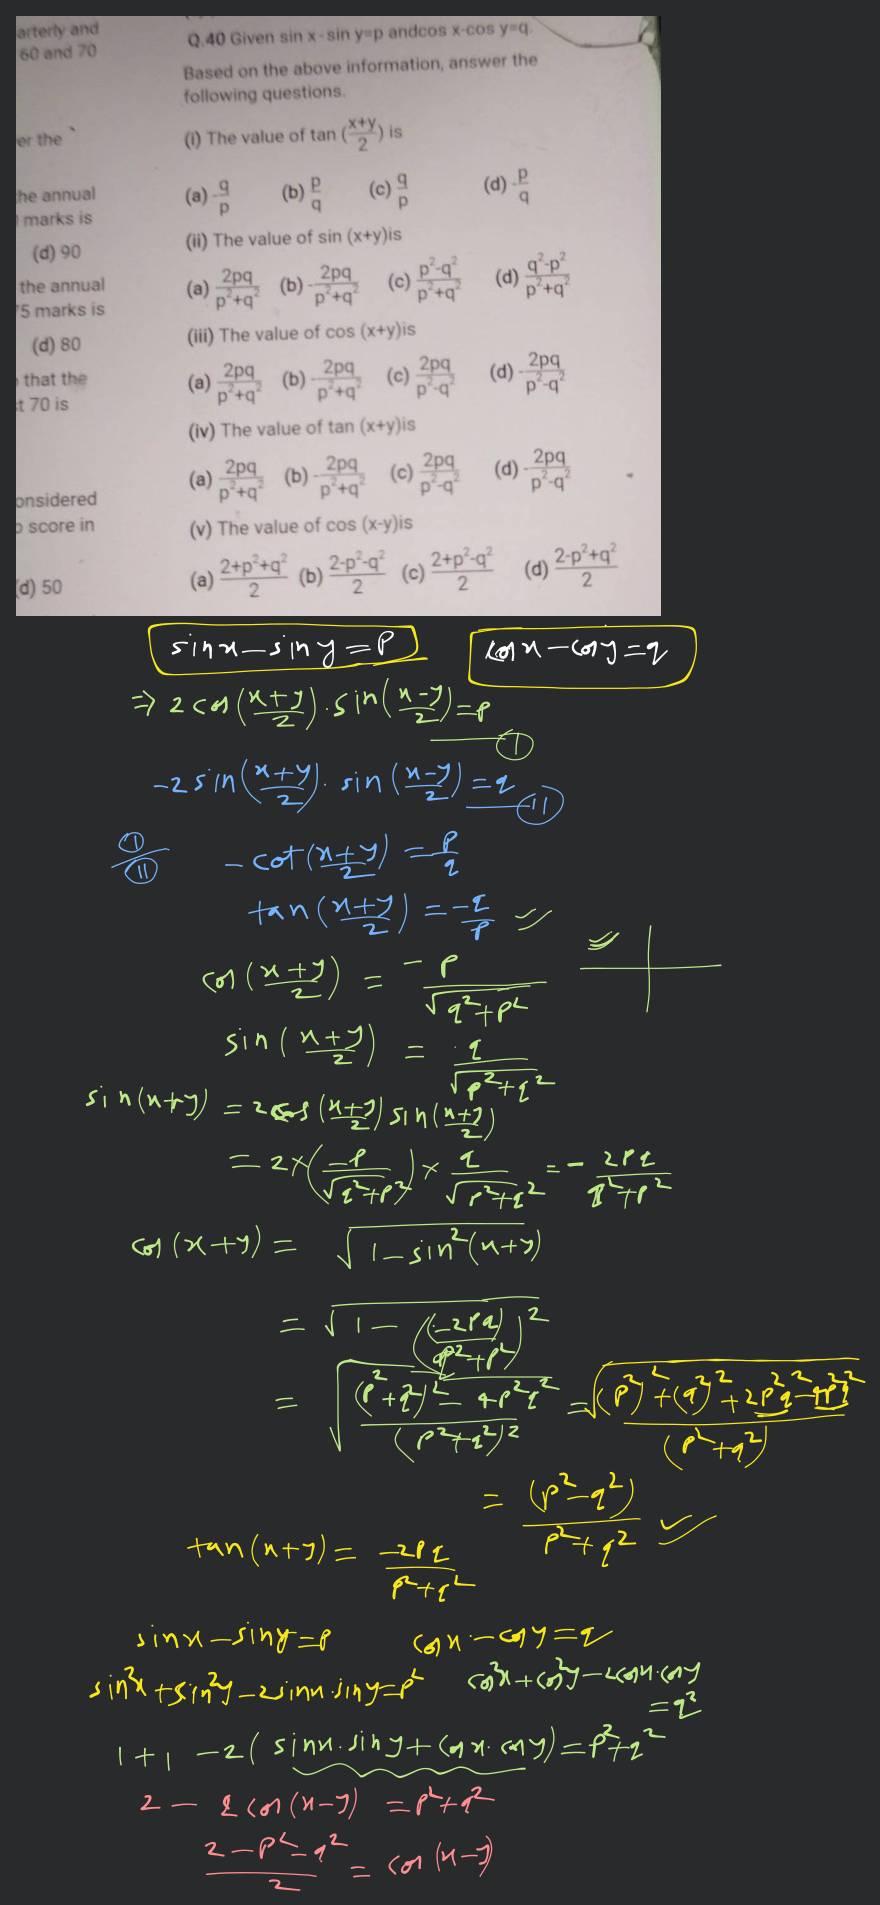 arterly and
60 and 70
er the
he annual
marks is
(d) 90
the annual
5 marks is
(d) 80
that the
t 70 is
onsidered
score in
(d) 50
Q.40 Given sin x-sin y=p andcos x-cos y=q.
Based on the above information, answer the
following questions.
(i) The value of tan (x+y/2) is
(a) -q/p (b) p/q (c) q/p (d) -p/q
(ii) The value of sin (x+y)is
(a) 2pq/p²+q² (b) -2pq/p²+q² (c) p²-q²/p²+q² (d) q²-p²/p²+q²
(iii) The value of cos (x+y)is
(a) 2pq/p²+q² (b) -2pq/p²+q² (c) 2pq/p²-q² (d) -2pq/p²-q²
(iv) The value of tan (x+y)is
(a) 2pq/p²+q² (b) -2pq/p²+q² (c) 2pq/p²-q² (d) -2pq/p²-q²
(v) The value of cos (x-y)is
(a) 2+p²+q²/2 (b) 2-p²-q²/2 (c) 2+p²-q²/2 (d) 2-p²+q²/2
sinx-siny=P cosx-cosy=q
⇒ 2cos(x+y/2).sin(x-y/2)=p
I
-2sin(x+y/2).sin(x-y/2)=q II
I/II -cot(x+y/2)=p/q
tan(x+y/2)=-q/p
cos(x+y/2) = -p/√q²+p²
sin(x+y/2) = q/√p²+q²
sin(x+y) = 2cos(x+y/2)sin(x+y/2)
= 2×(-p/√q²+p²)×q/√p²+q² = -2pq/q²+p²
cos(x+y) = √1-sin²(x+y)
= √1-((-2pq)/q²+p²)²
= √(p²+q²)²-4p²q²/(p²+q²)² = √(p²)²+(q²)²+2p²q²-4p²q²/(p²+q²)
= (p²-q²)/p²+q²
tan(x+y) = -2pq/p²+q²
sinx-siny=p cosx-cosy=q
sin²x+sin²y-2sinx.siny=p² cos²x+cos²y-2cosx.cosy
=q²
1+1-2(sinx.siny+cosx.cosy)=p²+q²
2-2cos(x-y)=p²+q²
2-p²-q²/2=cos(x-y)